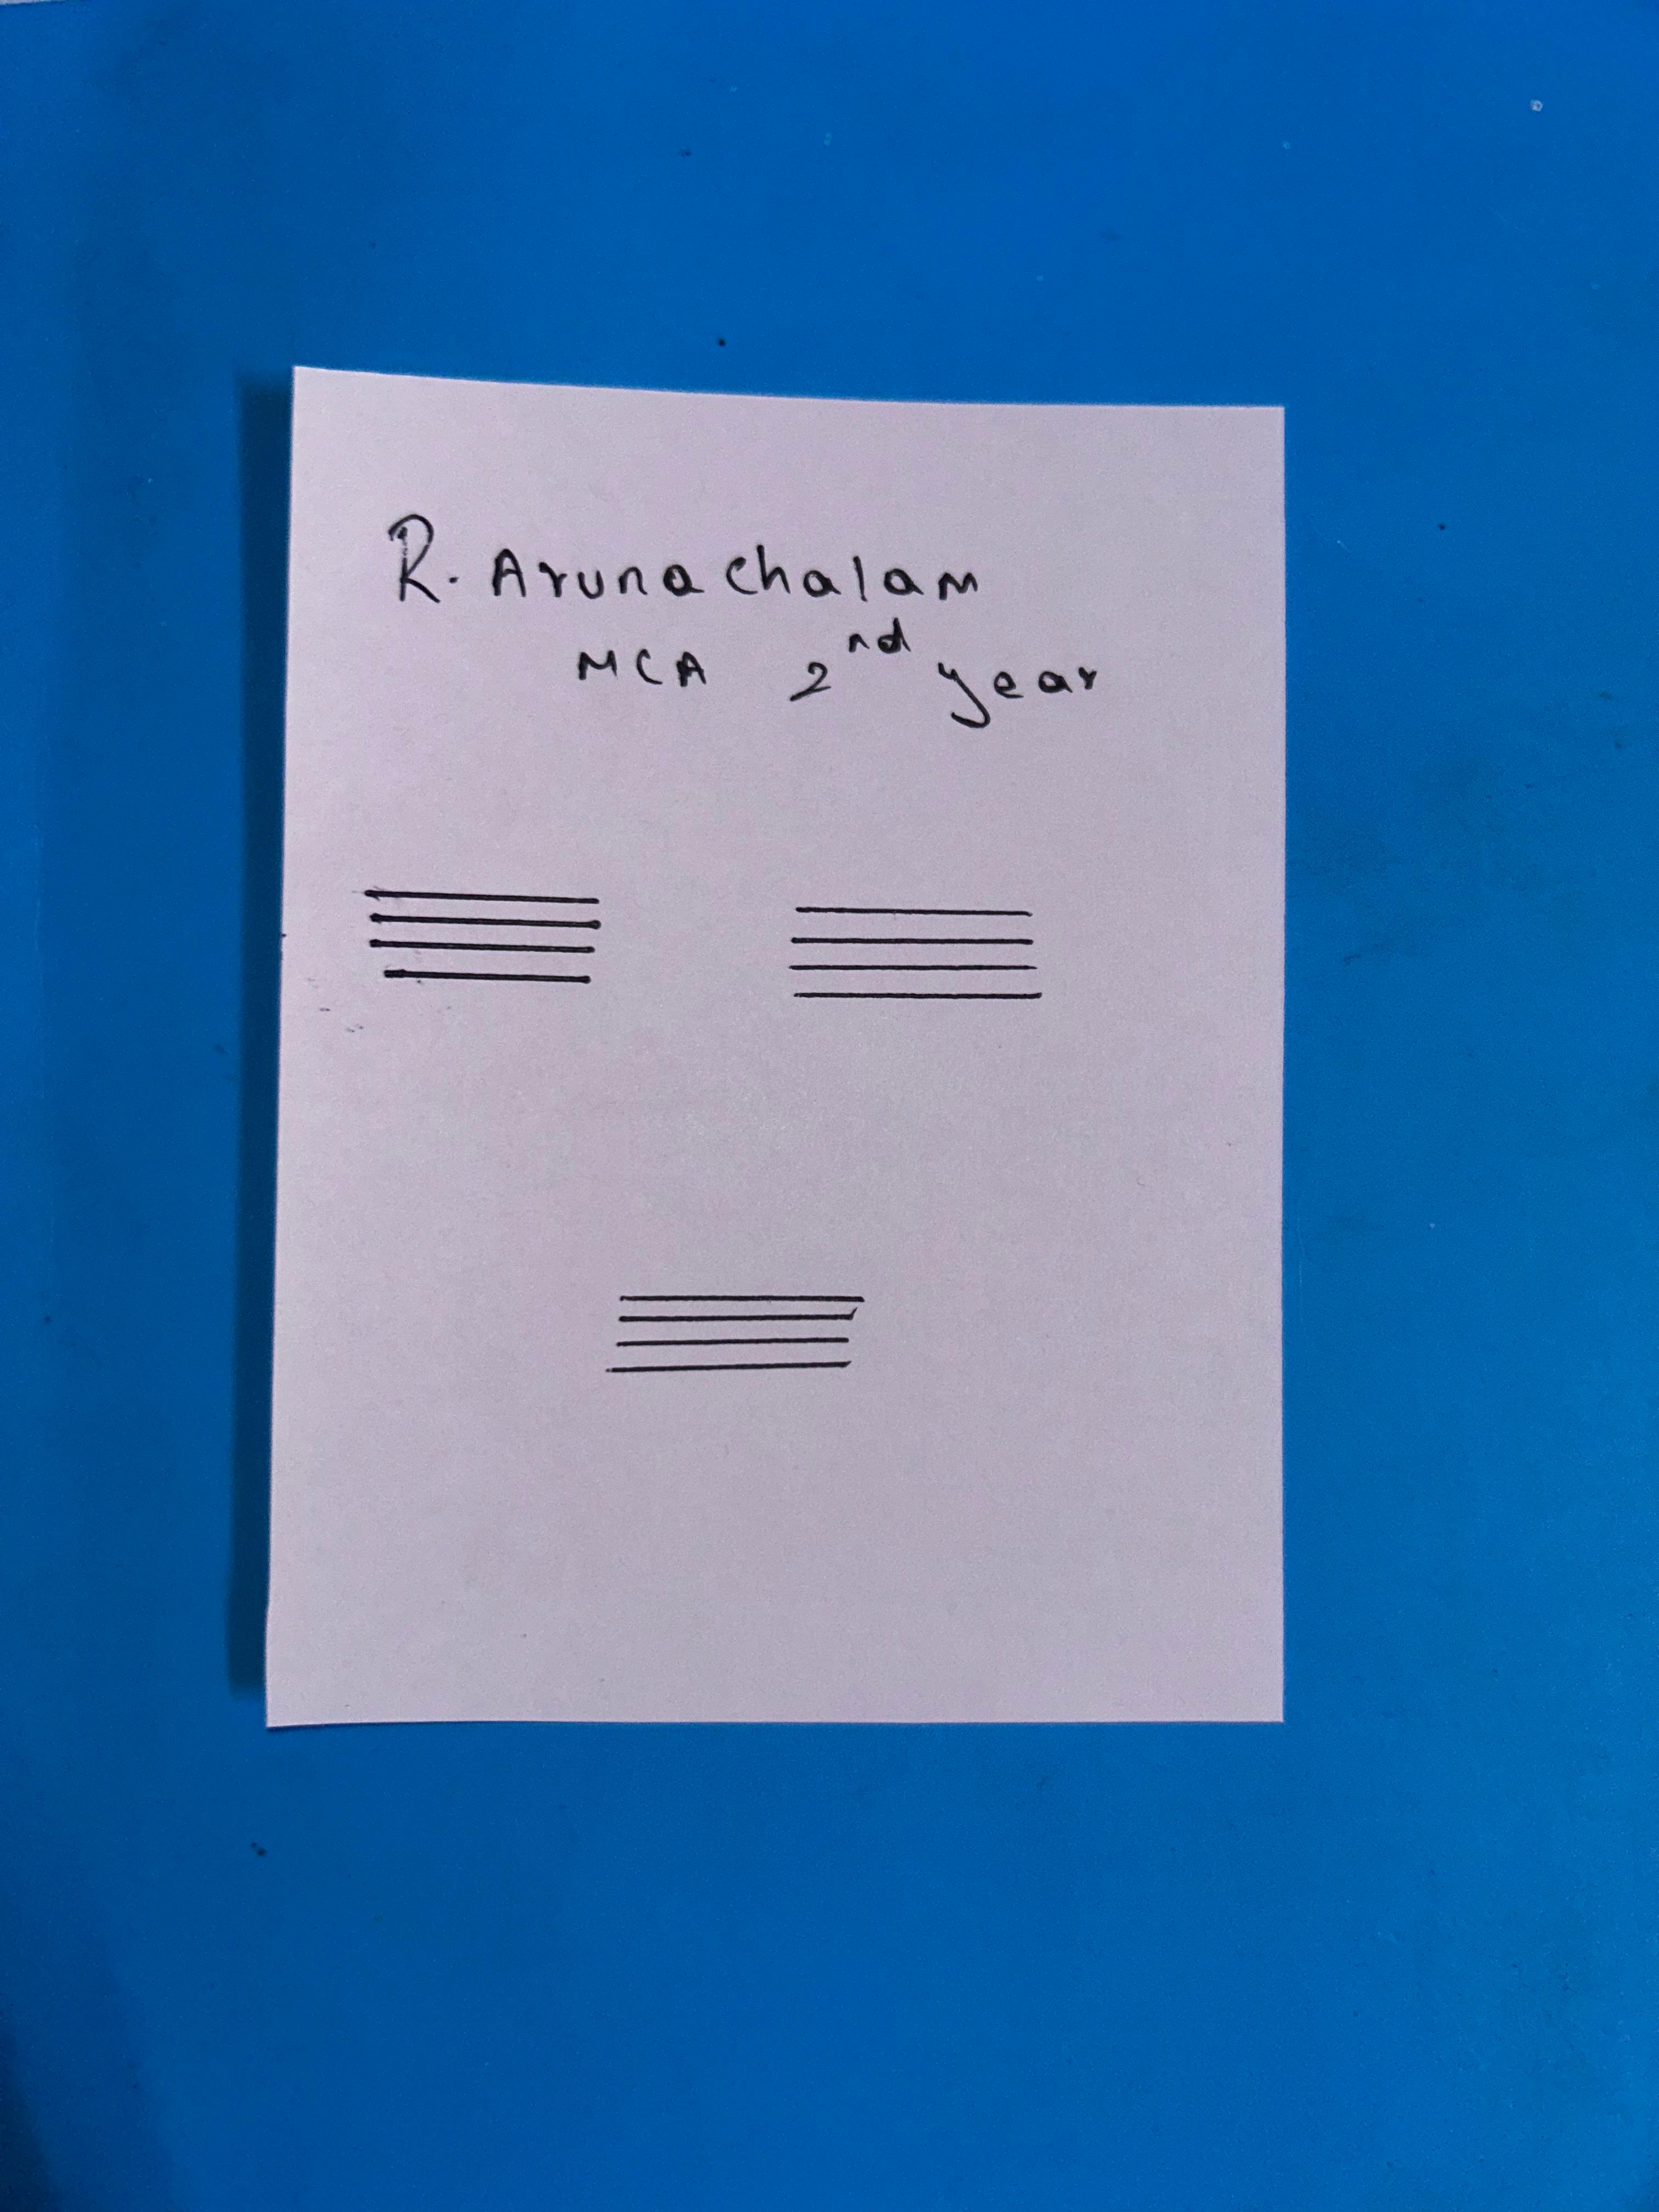 R. Arunachalam
MCA 2nd year